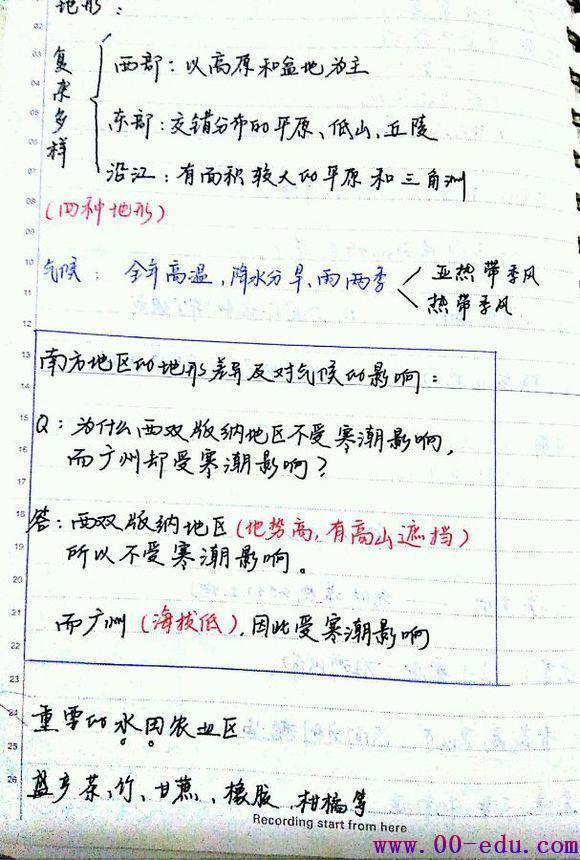 地形：
复杂多样
西部：以高原和盆地为主
东部：交错分布的平原、低山、丘陵
沿江：有面积较大的平原和三角洲
(四种地形)
气候：全年高温，降水分旱、雨两季
亚热带季风
热带季风
南方地区的地形差异及对气候的影响：
Q：为什么西双版纳地区不受寒潮影响，
而广州却受寒潮影响？
答：西双版纳地区(地势高，有高山遮挡)
所以不受寒潮影响。
而广州(海拔低)，因此受寒潮影响
重要的水田农业区
盛产茶、竹、甘蔗、橡胶、柑橘等
Recording start from here
www.00-edu.com